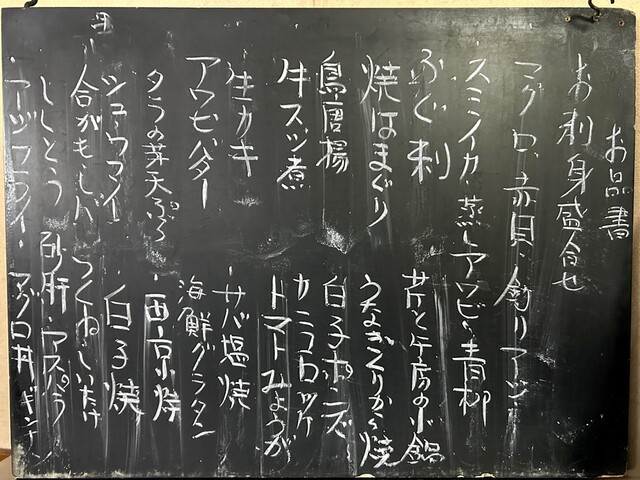 お品書
お刺身盛合せ
マグロ、赤貝、釣りアジ
スミイカ・蒸しアワビ・青柳
ふぐ刺
芹と牛房の小鍋
焼はまぐり
うなぎくりから焼
鳥唐揚
白子ポンズ
牛スジ煮
カニコロッケ
トマトみょうが
生カキ
サバ塩焼
アワビバター
海鮮グラタン
タラの芽天ぷら
西京焼
シューマイ
白子焼
合がも・レバ つくね・しいたけ
ししとう 砂肝・アスパラ
ギンナン
アジフライ・マグロ丼